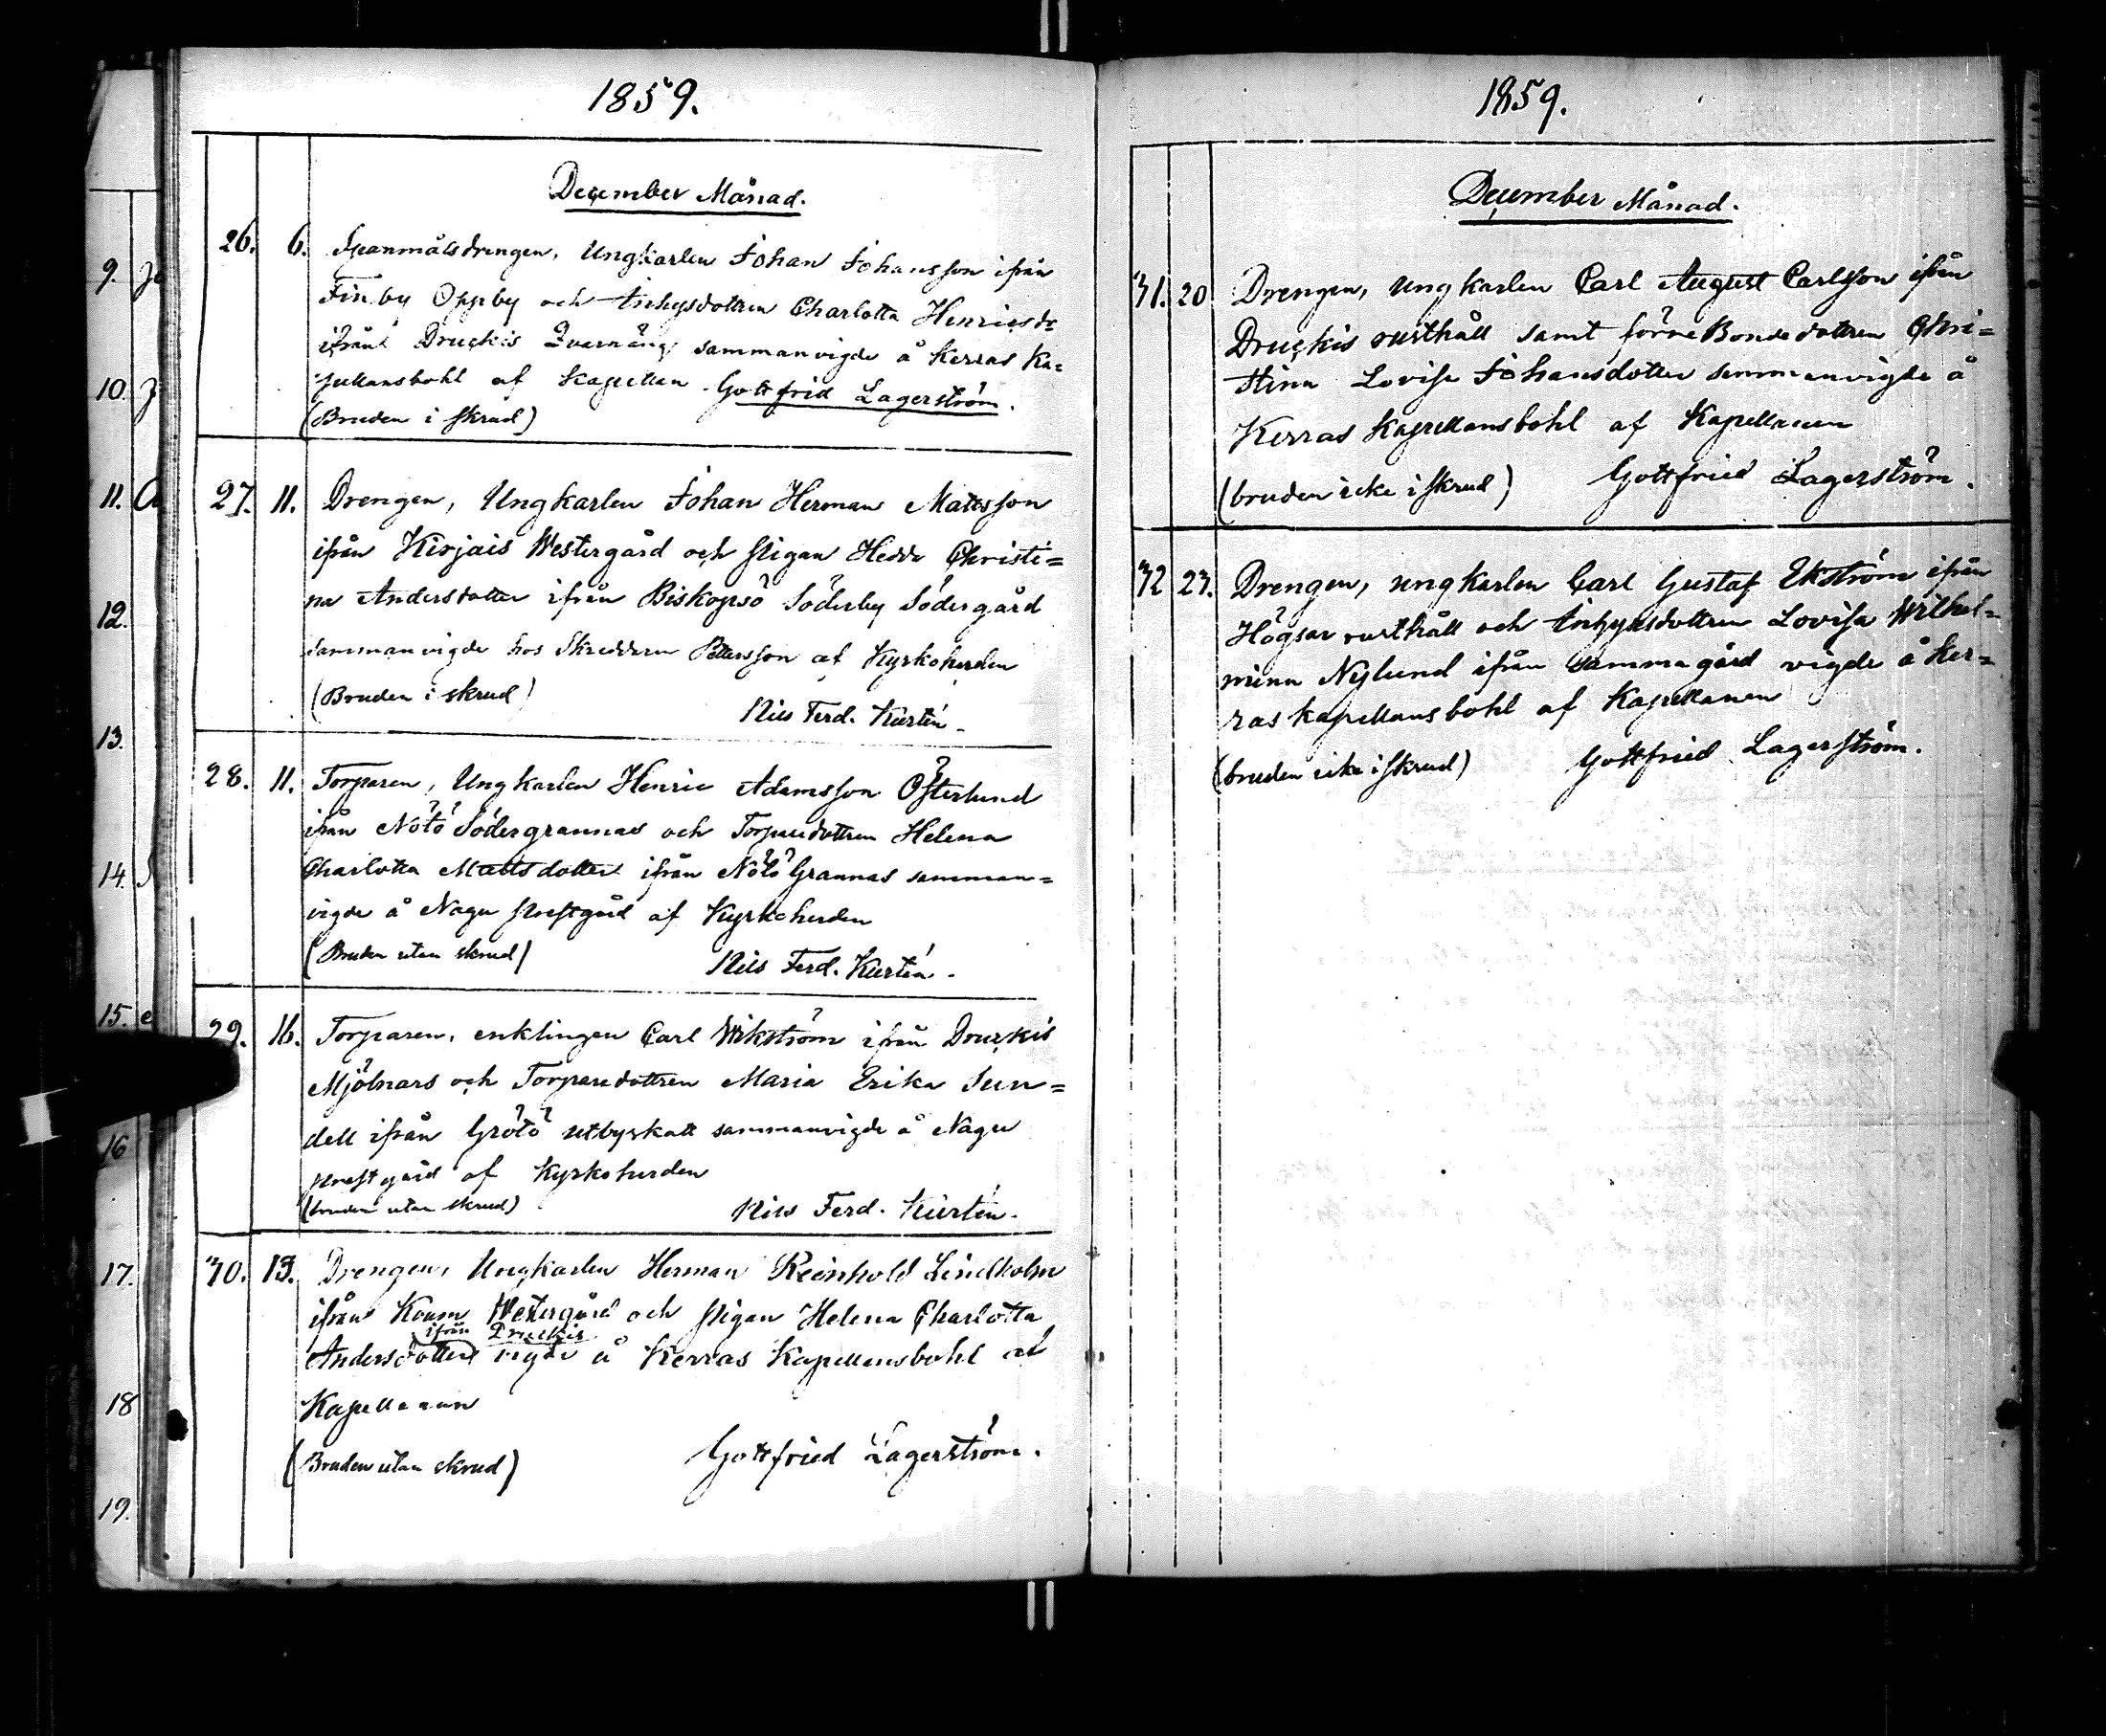 1859.
December Månad.
26. 6. Spanmålsdrengen, Ungkarlen Johan Johansson ifrån
Finby Oppby och Inhysdottren Charlotta Henricsdr
ifrån Druckis Qvarnäng sammanvigde å Kerras Ka=
pellansbohl af Kapellan Gottfrid Lagerström.
(Bruden i skrud)
27. 11. Drengen, Ungkarlen Johan Herman Matsson
ifrån Kirjais Westergård och Pigan Hedda Christi=
na Andersdotter ifrån Biskopsö Söderby Södergård
sammanvigde hos Skreddaren Pettersson af Kyrkoherden
(Bruden i skrud) Nils Ferd. Kurtén.
28. 11. Torparen, Ungkarlen Henric Adamsson Österlund
ifrån Nötö Södergrannas och Torparedottren Helena
Charlotta Mattsdotter ifrån Nötö Grannas samman=
vigde å Nagu Prestgård af Kyrkoherden
(Bruden utan skrud) Nils Ferd. Kurtén.
29. 16. Torparen, enklingen Carl Wikström ifrån Druckis
Mjölnars och Torparedottren Maria Erika Sun=
dell ifrån Grötö utbyskatt sammanvigde å Nagu
prestgård af Kyrkoherden
(bruden utan skrud) Nils Ferd. Kurtén.
30. 13. Drengen, Ungkarlen Herman Reinhold Lindholm
ifrån Krum Westergård och Pigan Helena Charlotta
ifrån Druckis
Andersdotter vigde å Kerras Kapellansbohl af
Kapellanen
(Bruden utan skrud) Gottfried Lagerström.
1859.
December Månad.
31. 20 Drengen, ungkarlen Carl August Carlsson ifrån
Druckis rusthåll samt förre Bondedottren Chri=
stina Lovisa Johansdotter sammanvigde å
Kerras Kapellansbohl af Kapellanen
(bruden icke i skrud) Gottfried Lagerström.
32 23. Drengen, ungkarlen Carl Gustaf Ekström ifrån
Högsar rusthåll och Inhysesdottren Lovisa Wilhel=
mina Nylund ifrån samma gård vigde å Ker=
ras kapellansbohl af Kapellanen
(bruden icke i skrud) Gottfried Lagerström.
9.
10.
11.
12.
13.
14.
15.
16
17.
18
19.